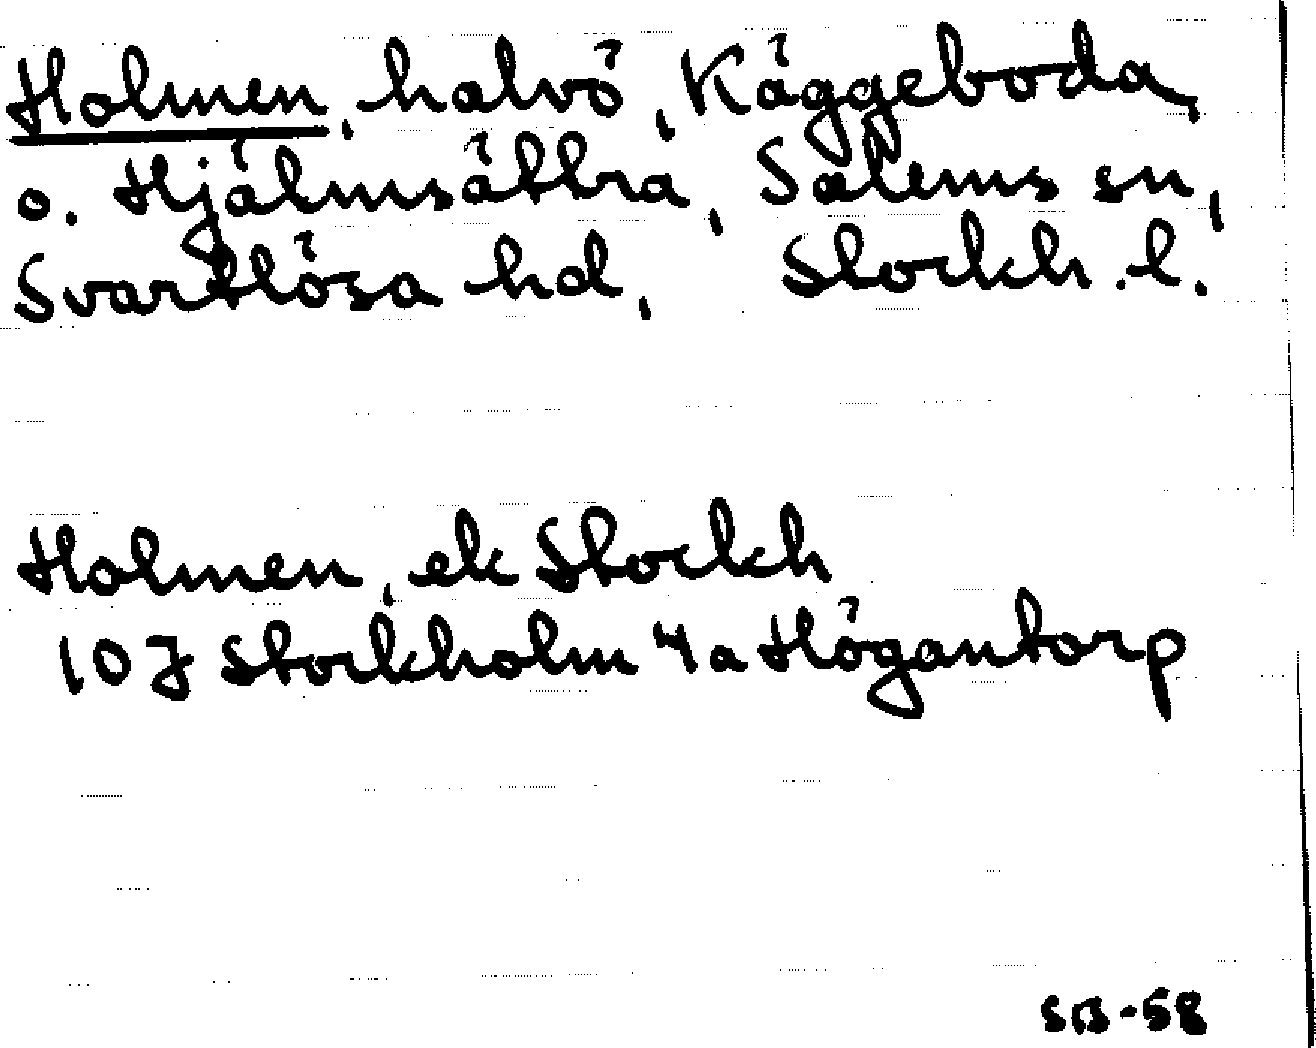 Holmen, halvö, Käggeboda,
o. Hjälmsättra, Salems sn,
Svartlösa hd, Stockh. l.
Holmen, ek Stockh
10 J Stockholm 4a Högantorp
SB-58